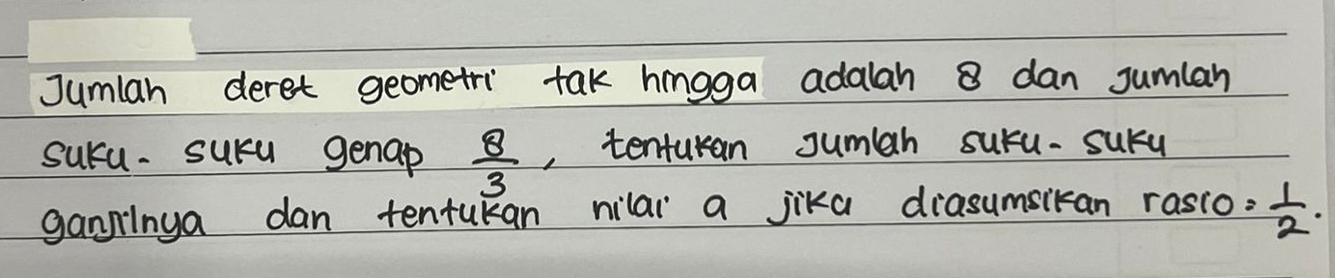 Jumlah deret geometri tak hingga adalah 8 dan Jumlah
suku-suku genap 8/3, tentukan Jumlah suku-suku
ganjilnya dan tentukan nilai a jika diasumsikan rasio = 1/2.